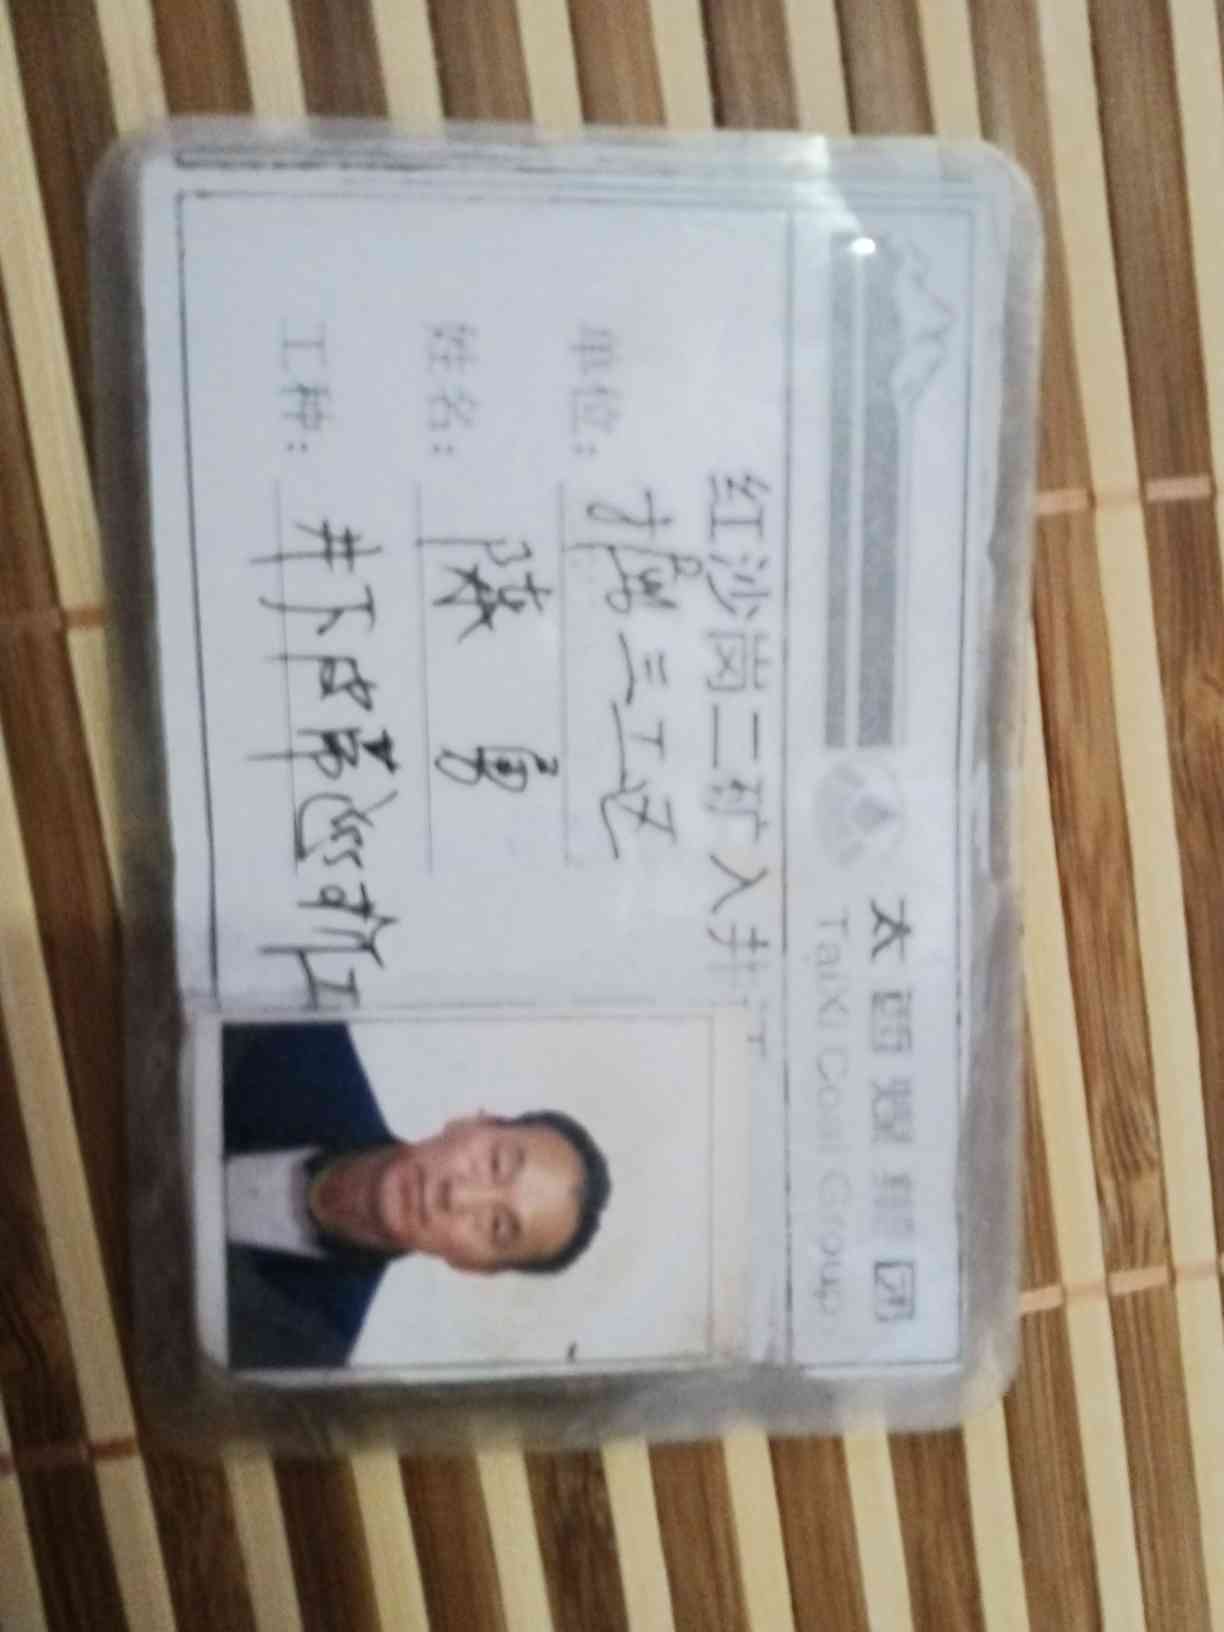 太西煤集团
TaiXi Coal Group
红沙岗二矿入井证
单位：掘三工区
姓名：陈勇
工种：井下皮带